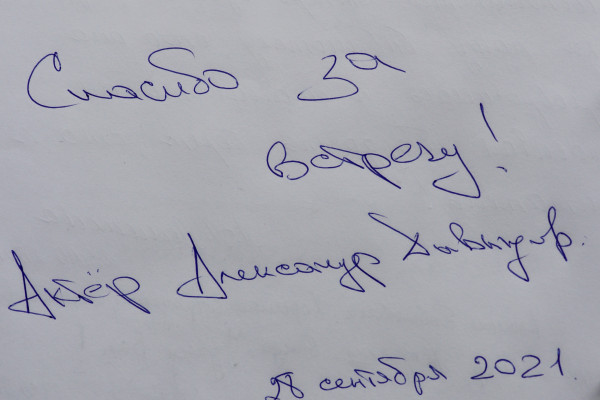 Спасибо за
встречу!
Актёр Александр Давыдов.
28 сентября 2021.